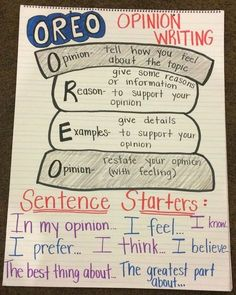 OREO OPINION
WRITING
Opinion- tell how you feel
about the topic
Reason- give some reasons
or information
to support your
opinion
Examples- give details
to support your
opinion
Opinion- restate your opinion
(with feeling)
Sentence Starters:
In my opinion... I feel... I know...
I prefer... I think... I believe
The best thing about... The greatest part
about...